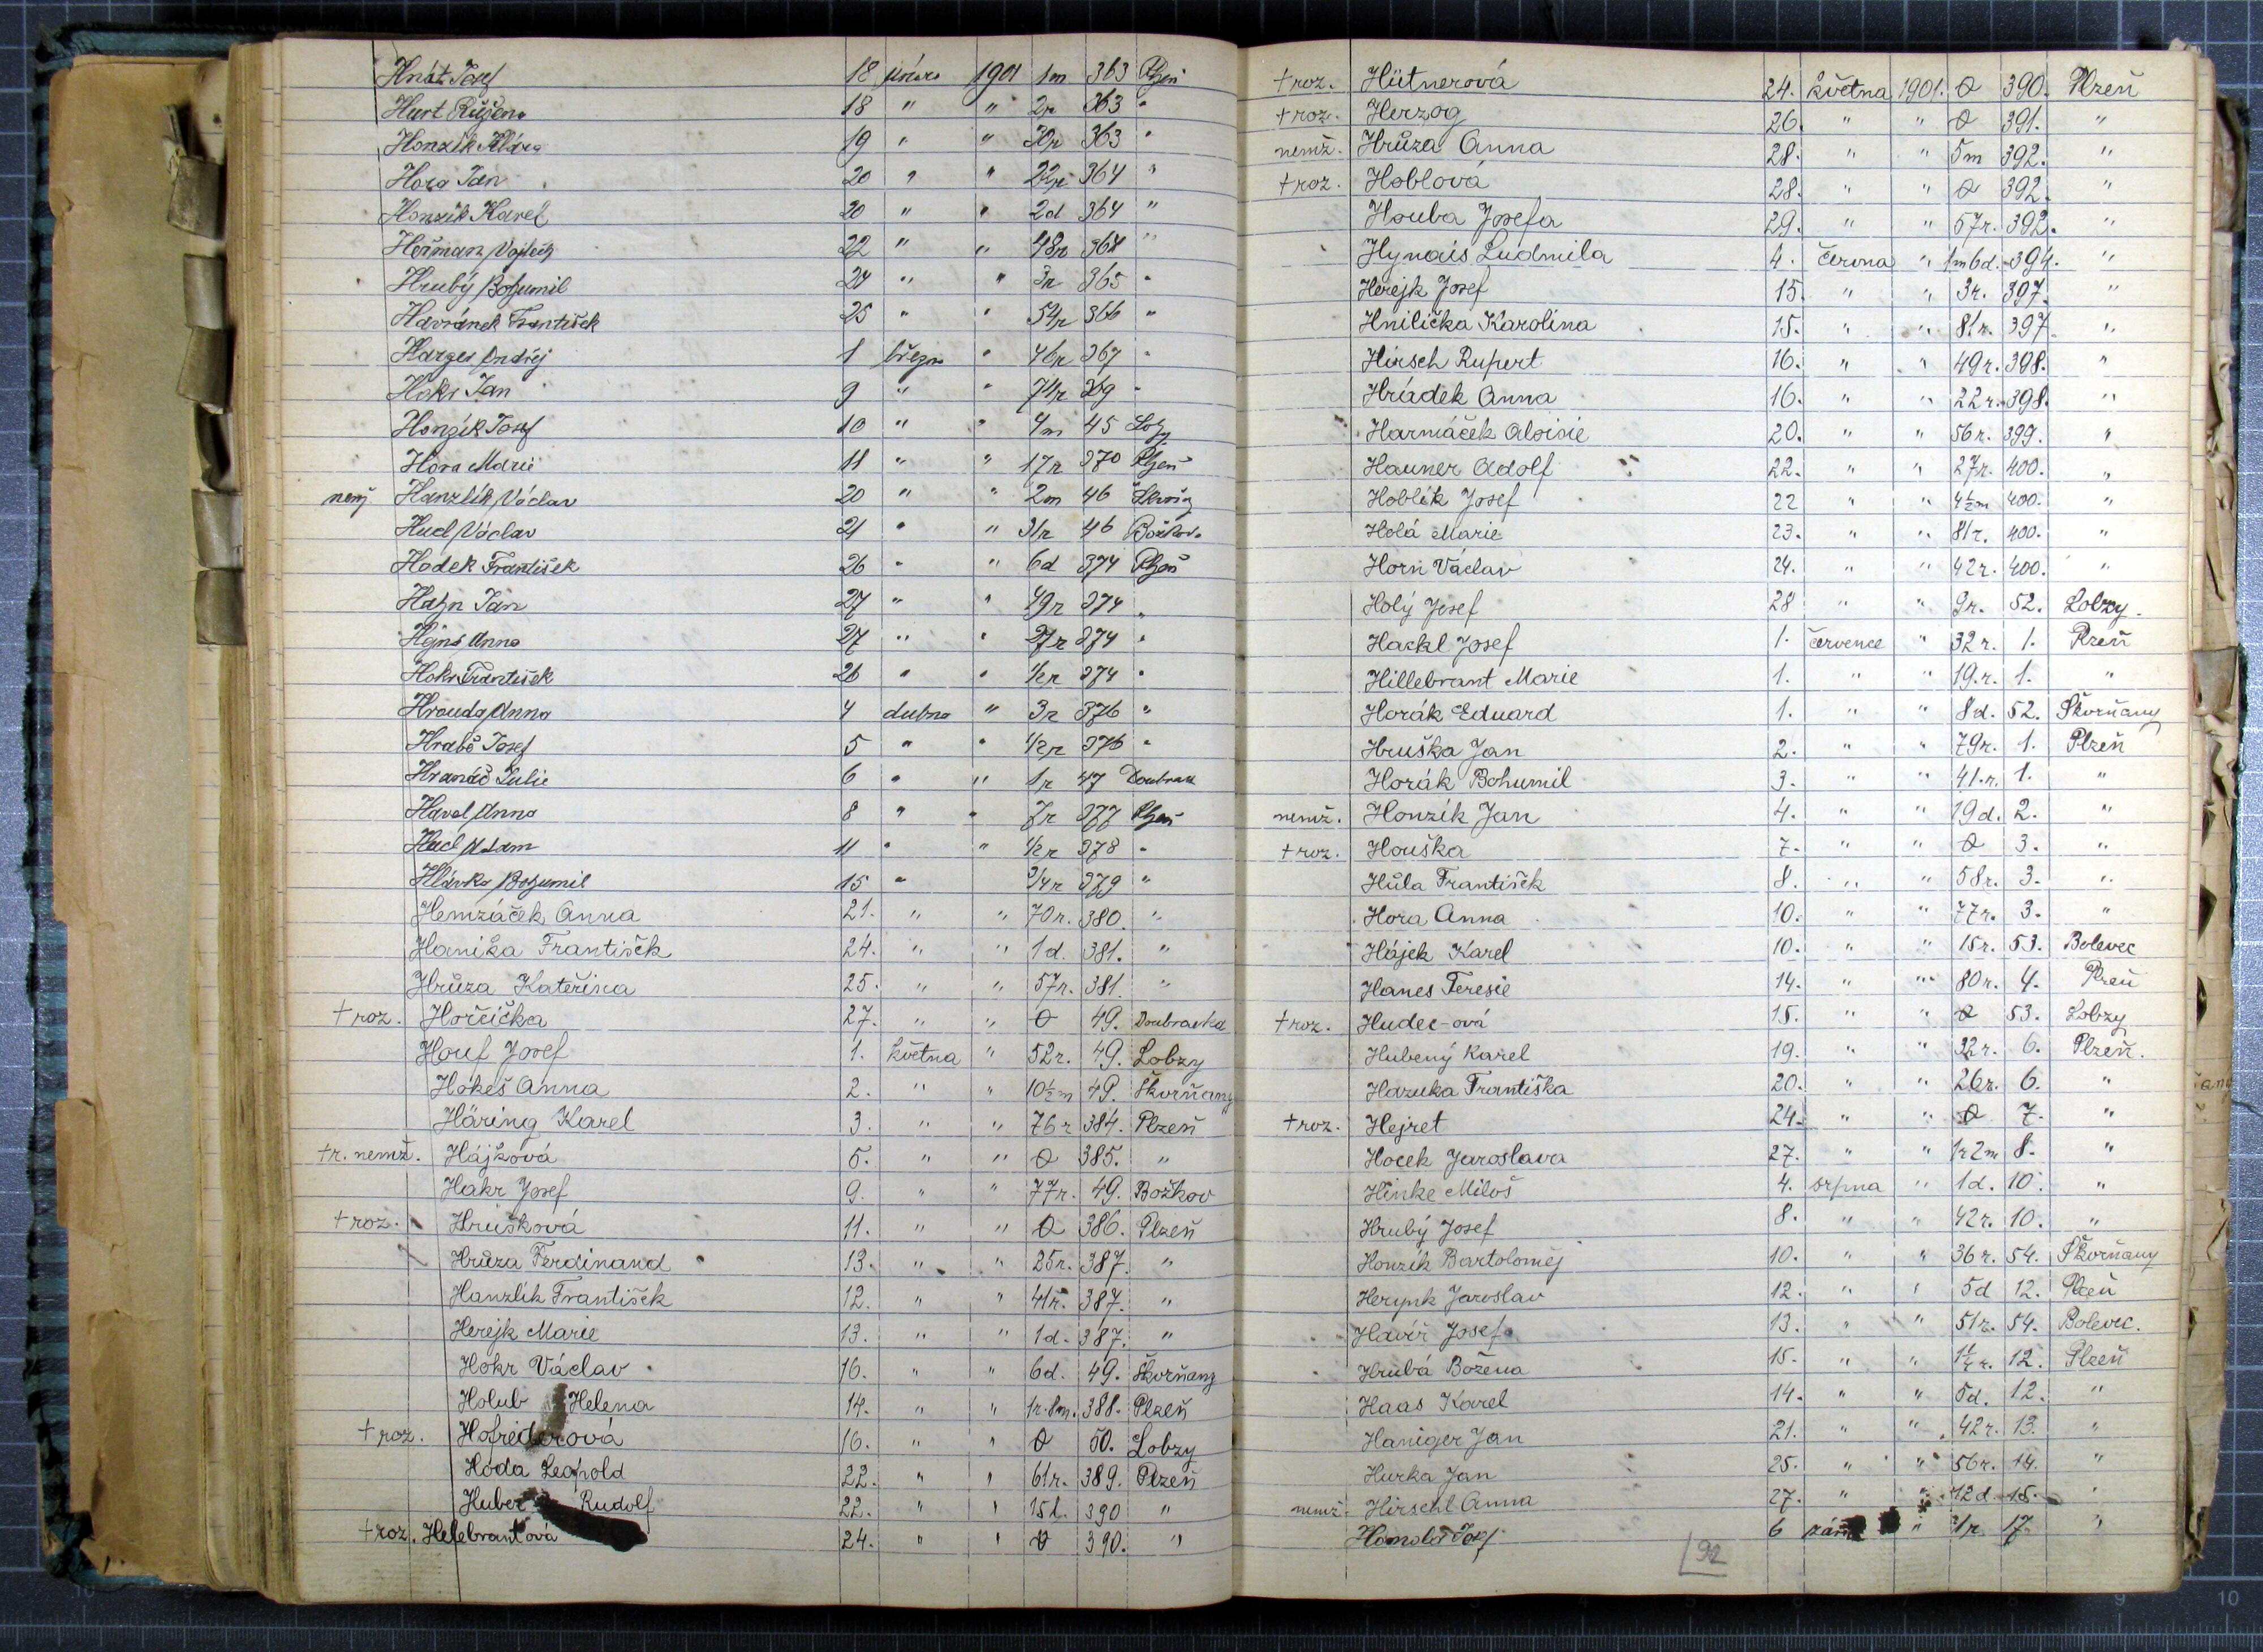 Hnát Josef 18 února 1901 1m 363 Plzeň
Hurt Růžena 18 " " 2r 363 "
Honzík Klára 19 " " 32r 363 "
Hora Jan 20 " " 22r 364 "
Honzík Karel 20 " " 2d 364 "
Heřman Vojtěch 22 " " 48r 364 "
Hrubý Bohumil 24 " " 3r 365 "
Havránek František 25 " " 54r 366 "
Harges Ondřej 1 března " 46r 367 "
Hokr Jan 9 " " 74r 369 "
Honzík Josef 10 " " 4m 45 Lobzy
Hora Marie 11 " " 17r 370 Plzeň
nemž Hanzlík Václav 20 " " 2m 46
Hucl Václav 21 " " 31r 46 Božkov
Hodek František 26 " " 6d 374 Plzeň
Hahn Jan 27 " " 49r 374 "
Anna 27 " " 27r 374 "
Hokr František 26 " " 1/2r 374 "
Hrouda Anna 4 dubna " 3r 376 "
Hrabě Josef 5 " " 1/2r 376 "
Hranáč Julie 6 " " 1r 47
Havel Anna 8 " " 7r 377 Plzeň
Hucl Adam 11 " " 1/2r 378 "
Hlávka Bohumil 15 " 3/4r 379 "
Hemzáček Anna 21. " " 70r. 380. "
Hanika František 24. " " 1d. 381. "
Hrůza Kateřina 25. " " 57r. 381. "
†roz. Hořčička 27. " " 0 49. Doubravka
Houf Josef 1. května " 52r. 49. Lobzy
Hokeš Anna 2. " " 10½m 49. Škvrňany
Häring Karel 3. " " 76r 384. Plzeň
†r. nemž. Hájková 5. " " 0 385. "
Hakr Josef 9. " " 77r. 49. Božkov
†roz. Hrušková 11. " " 0 386. Plzeň
Hrůza Ferdinand 13. " " 25r. 387. "
Hanzlík František 12. " " 41r. 387. "
Herejk Marie 13. " " 1d. 387. "
Hokr Václav 16. " " 6d. 49. Škvrňany
Holub Helena 14. " " 1r.8m. 388. Plzeň
†roz. 16. " " 0 50. Lobzy
Hóda Leopold 22. " " 61r. 389. Plzeň
Huber Rudolf 22. " " 390 "
†roz. Helebrantová 24. " " 0 390. "
†roz. Hütnerová 24. května 1901. 0 390. Plzeň
†roz. Herzog 26. " " 0 391. "
nemž. Hrůza Anna 28. " " 5m 392. "
†roz. Hoblová 28. " " 0 392. "
Houba Josefa 29. " " 57r. 392. "
Hynais Ludmila 4. června " 1m6d. 394. "
Herejk Josef 15 " " 3r. 397. "
Hnilička Karolina 15. " " 81r. 397. "
Hirsch Rupert 16. " " 49r. 398. "
Hrádek Anna 16. " " 22r. 398. "
Harmáček Aloisie 20. " " 56r. 399. "
Hauner Adolf 22. " " 27r. 400. "
Hoblík Josef 22 " " 4½m 400. "
Holá Marie 23. " " 81r. 400. "
Horn Václav 24. " " 42r. 400. "
Holý Josef 28 " " 9r. 52. Lobzy.
Hackl Josef 1. července " 32r. 1. Plzeň
Hillebrant Marie 1. " " 19.r. 1. "
Horák Eduard 1. " " 8d. 52. Škvrňany
Hruška Jan 2. " " 79r. 1. Plzeň
Horák Bohumil 3. " " 41.r. 1. "
nemž. Honzík Jan 4. " " 19d. 2. "
†roz. Houška 7. " " 0 3. "
Hůla František 8. " " 58r. 3. "
Hora Anna 10. " " 77r. 3. "
Hájek Karel 10. " " 15r. 53. Bolevec
Hanes Teresie 14. " " 80r. 4. Plzeň
†roz. Hudec-ová 15. " " 0 53. Lobzy
Hubený Karel 19. " " 32r. 6. Plzeň.
Hazuka Františka 20. " " 26r. 6. "
†roz. Hejret 24. " " 0 7. "
Hocek Jaroslava 27. " " 1r2m 8. "
Hinke Miloš 4. srpna " 1d. 10. "
Hrubý Josef 8. " " 42r. 10. "
Honzík Bartoloměj 10. " " 36r. 54. Škvrňany
Herynk Jaroslav 12. " " 5d 12. Plzeň
Havíř Josef 13. " " 51r. 54. Bolevec.
Hrubá Božena 15. " " 12. Plzeň
Haas Karel 14. " " 5d. 12. "
Haniger Jan 21. " " 42r. 13. "
Hurka Jan 25. " " 56r. 14. "
nemž. Hirschl Anna 27. " " 12d 15. "
Josef 6 září " 17. "
92